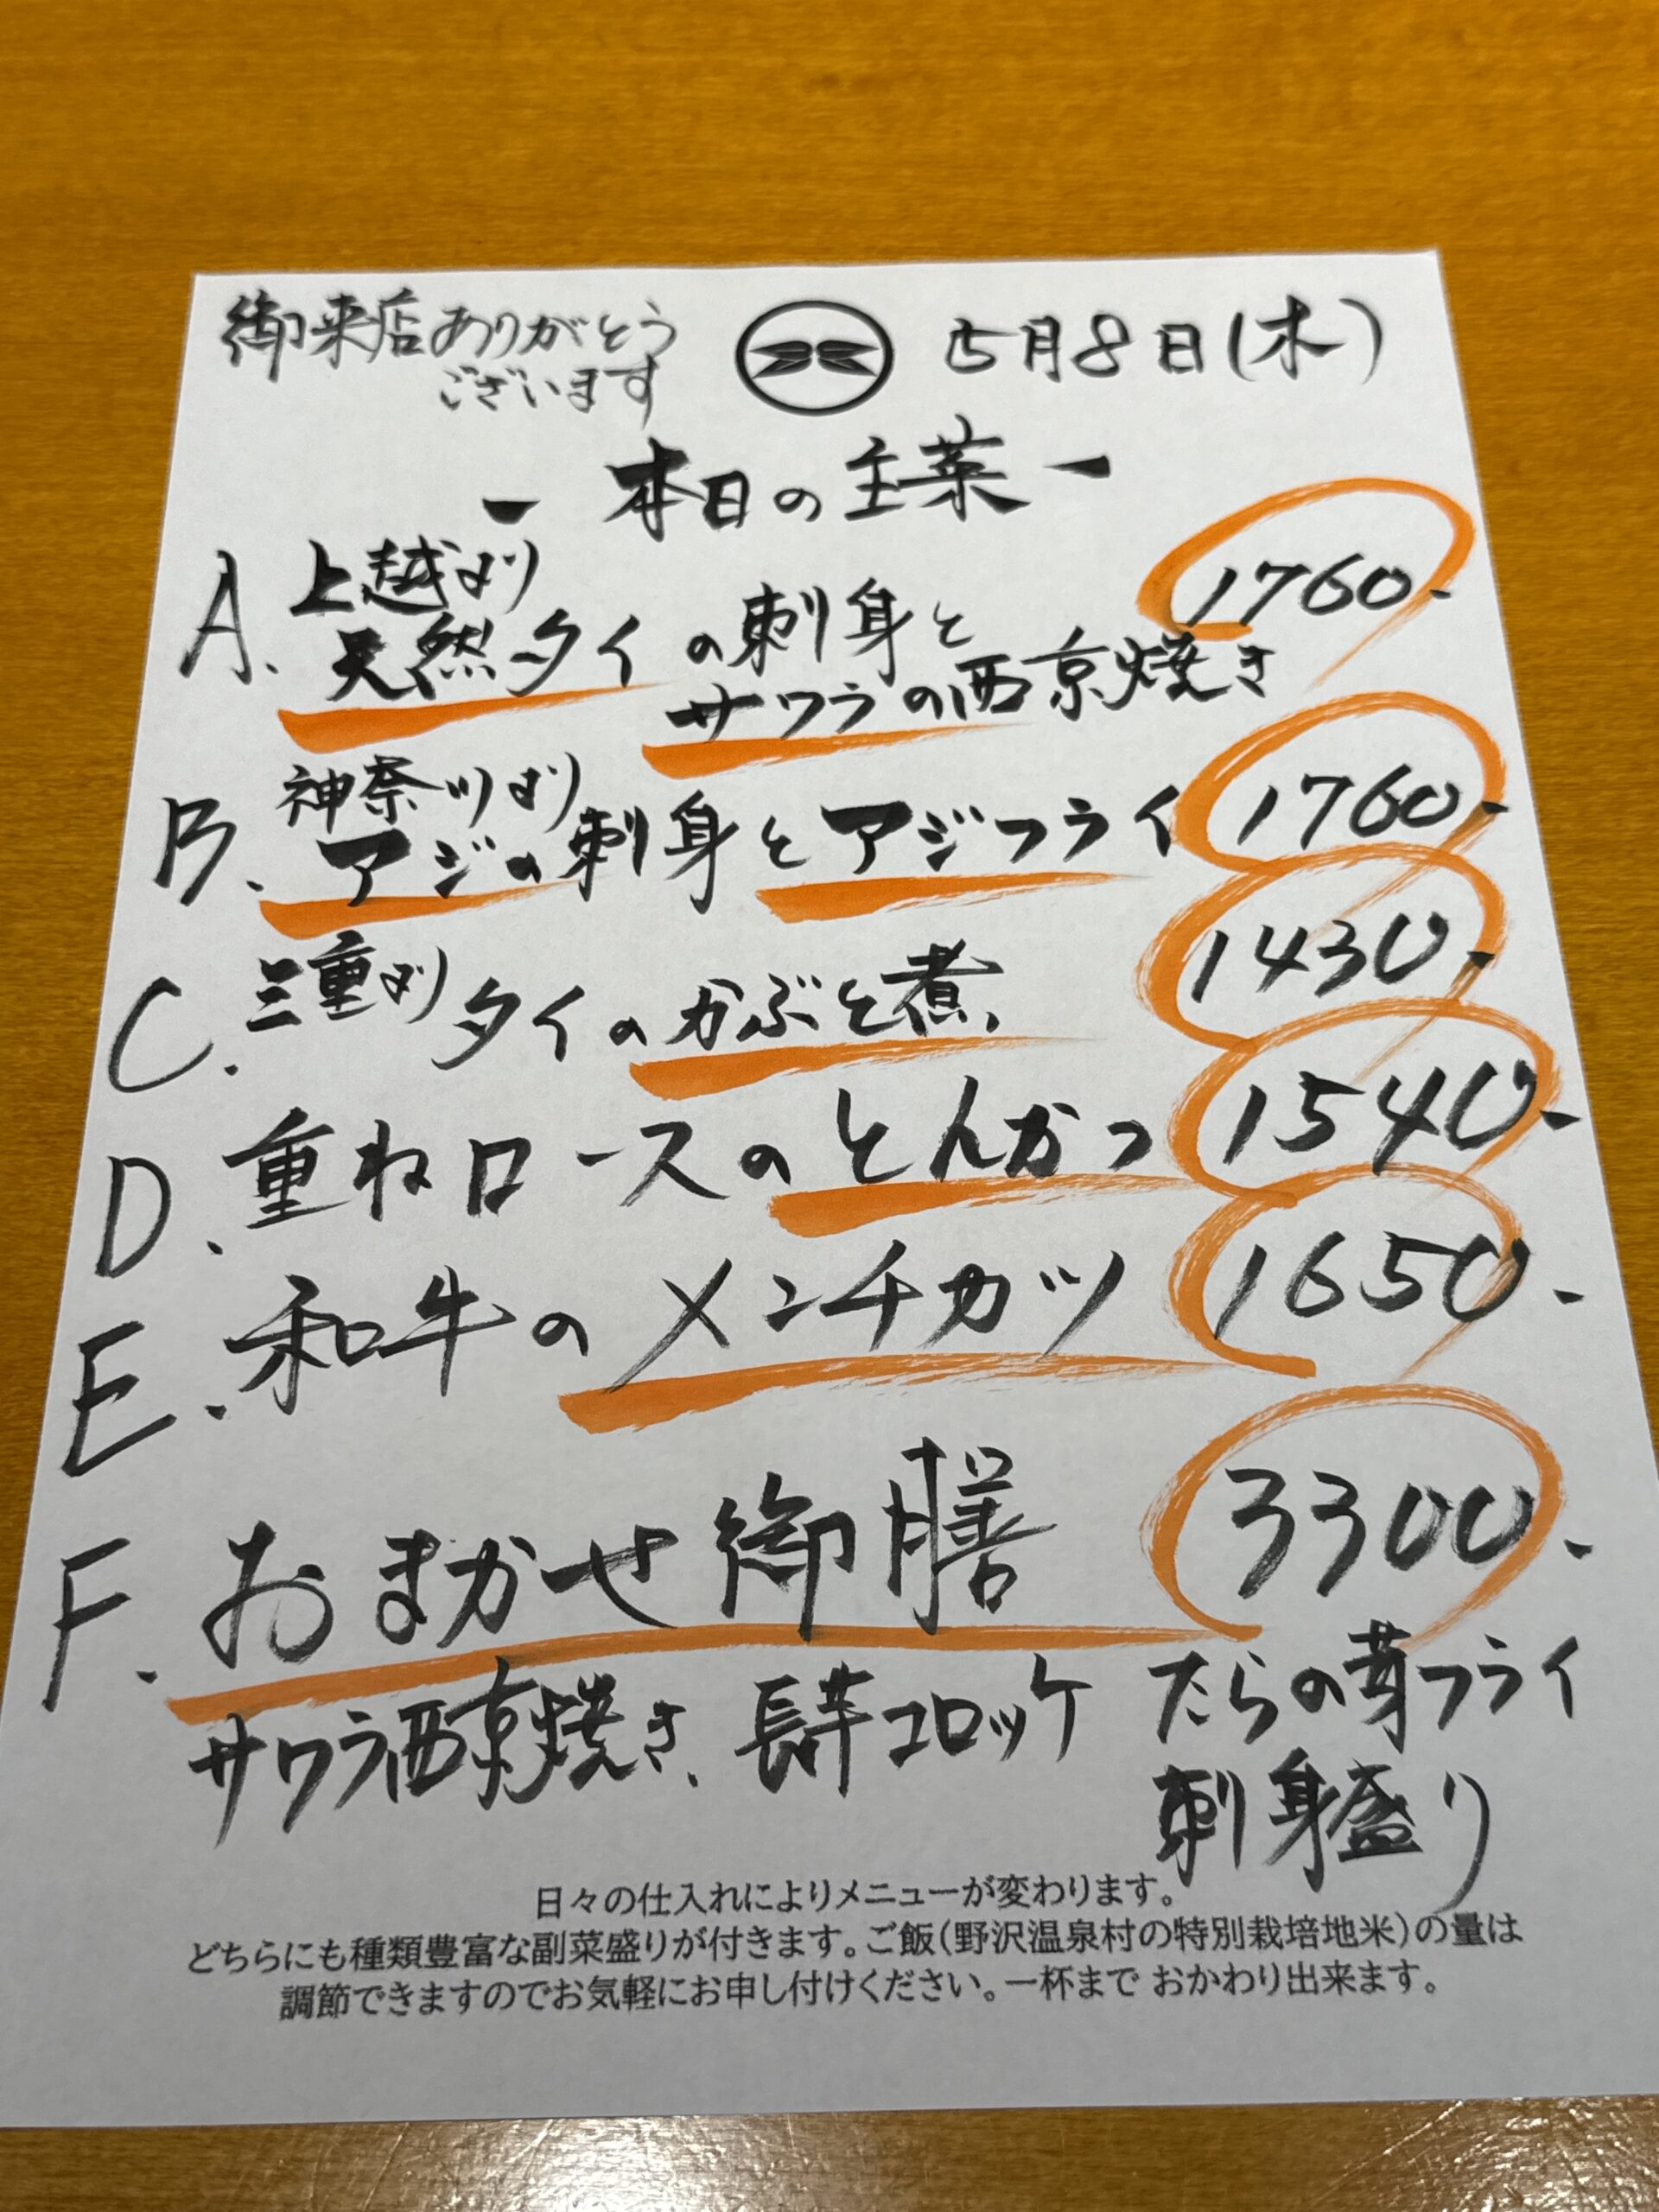 御来店ありがとう
ございます
5月8日(木)
ー 本日の主菜 ー
A. 上越より
天然タイの刺身と
サワラの西京焼き
1760-
B. 神奈川より
アジの刺身とアジフライ
1760-
C. 三重より
タイのかぶと煮
1430-
D. 重ねロースのとんかつ 1540-
E. 和牛のメンチカツ 1650-
F. おまかせ御膳 3300-
サワラ西京焼き、長芋コロッケ たらの芽フライ
刺身盛り
日々の仕入れによりメニューが変わります。
どちらにも種類豊富な副菜盛りが付きます。ご飯(野沢温泉村の特別栽培地米)の量は
調節できますのでお気軽にお申し付けください。一杯まで おかわり出来ます。